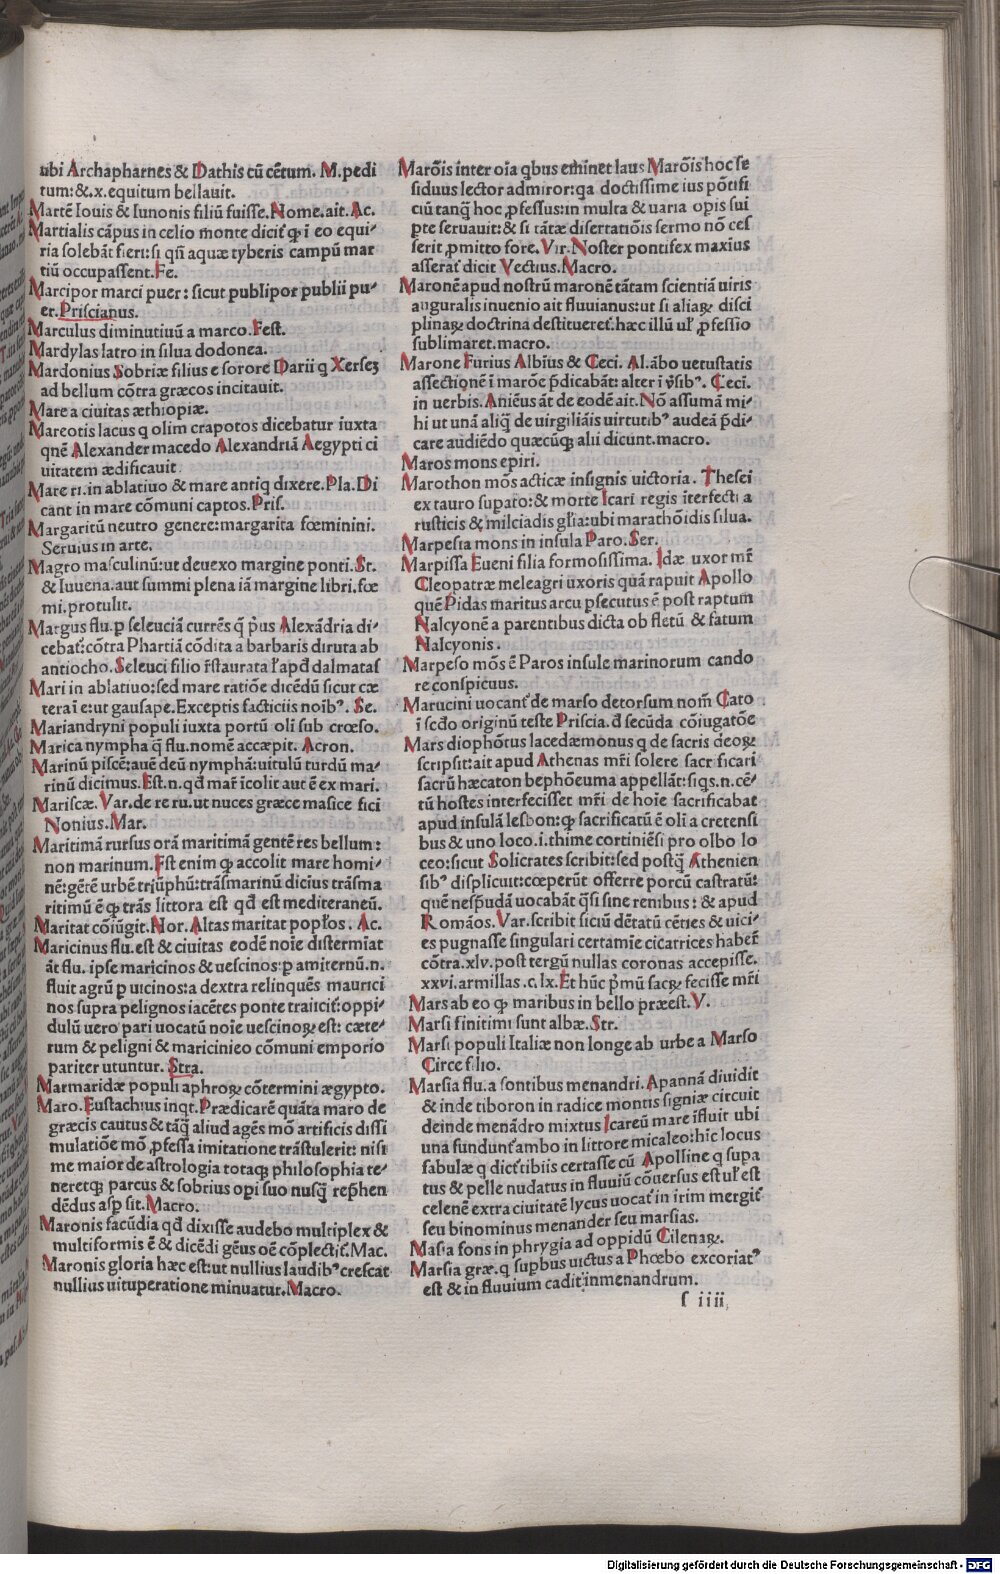 ubi Archapharnes & Dathis cū cētum. M. pedi
tum:&.x.equitum bellauit.
Martē Iouis & Iunonis filiū fuisse. Nome.ait. Ac.
Martialis cāpus in celio monte dicit ꝙ i eo equi-
ria solebāt fieri:si qñ aquæ tyberis campū mar
tiū occupassent.Fe.
Marcipor marci puer: sicut publipor publii pu-
er.Priscianus.
Marculus diminutiuū a marco.Fest.
Mardylas latro in silua dodonea.
Mardonius Sobriæ filius e sorore Darii q Xerseʒ
ad bellum cōtra græcos incitauit.
Mare a ciuitas æthiopiæ.
Mareotis lacus q olim crapotos dicebatur iuxta
qnē Alexander macedo Alexandriā Aegypti ci
uitatem ædificauit
Mare ri.in ablatiuo & mare antiq dixere.Pla.Di
cant in mare cōmuni captos.Pris.
Margaritū neutro genere:margarita fœminini.
Seruius in arte.
Magro masculinū:ut deuexo margine ponti.St.
& Iuuena.aut summi plena iā margine libri.fœ
mi.protulit.
Margus flu.p seleuciā currēs q̄ p̄us Alexādria di-
cebat:cōtra Phartiā cōdita a barbaris diruta ab
antiocho.Seleuci filio r̄staurata l̓ apd dalmatas
Mari in ablatiuo:sed mare ratiōe dicēdū sicut cæ
tera i e:ut gausape.Exceptis facticiis noīb⁹. Se.
Mariandryni populi iuxta portū oli sub crœso.
Marica nympha q̄ flu.nomē accæpit. Acron.
Marinū piscē:auē deū nymphā:uitulū turdū ma-
rinū dicimus.Est.n.qd mar̄ icolit aut ē ex mari.
Mariscæ. Var.de re ru.ut nuces græce masice fici
Nonius.Mar.
Maritimā rursus orā maritimā gentē res bellum:
non marinum.Est enim ꝙ accolit mare homi-
nē:gētē urbē triūphū:trāsmarinū dicius trāsma
ritimū ē ꝙ trās littora est qd est mediteraneū.
Maritat cōiūgit.Hor.Altas maritat popłos. Ac.
Maricinus flu.est & ciuitas eodē noie distermiat
āt flu. ipse maricinos & uescinos:p amiternū.n.
fluit agrū p uicinos:a dextra relinquēs maurici
nos supra pelignos iacētes ponte traiicit:oppi-
dulū uero pari uocatū noie uescinoꝝ est: cæte-
rum & peligni & maricinieo cōmuni emporio
pariter utuntur. Stra.
Marmaridæ populi aphroꝝ cōtermini ægypto.
Maro.Eustachius inqt.Prædicarē quāta maro de
græcis cautus & tāq̄ aliud agēs mō artificis dissi
mulatiōe mō ꝓfessa imitatione trāstulerit: nisi
me maior de astrologia totaqꝫ philosophia te-
neretqꝫ parcus & sobrius opi suo nusq̄ rep̄hen
dēdus asp̄ sit.Macro.
Maronis facūdia qd dixisse audebo multiplex &
multiformis ē & dicēdi gēus oē cōplectit. Mac.
Maronis gloria hæc est:ut nullius laudib⁹ crescat
nullius uituperatione minuatur.Macro.
Marōis inter oīa qbus eminet laus Marōis hoc se
siduus lector admiror:qa doctissime ius pōtifi
ciū tanq̄ hoc ꝓfessus:in multa & uaria opis sui
pte seruauit:& si tātæ disertatiōis sermo nō ces
serit ꝓmitto fore. Vir.Noster pontifex maxius
asserat dicit Vectius.Macro.
Maronē apud nostrū maronē tātam scientiā uiris
auguralis inuenio ait fluuianus:ut si aliaꝝ disci
plinaꝝ doctrina destitueret.hæc illū ul̓ ꝓfessio
sublimaret.macro.
Marone Furius Albius & Ceci. Al.ābo uetustatis
assectionē i marōe p̄dicabāt:alter i v̄sib⁹. Ceci.
in uerbis.Aniēus āt de eodē ait.Nō assumā mi-
hi ut unā aliq̄ de uirgiliāis uirtutib⁹ audeā p̄di-
care audiēdo quæcūqꝫ alii dicunt.macro.
Maros mons epiri.
Marothon mōs acticæ insignis uictoria. Thesei
ex tauro supato:& morte Icari regis iterfecti a
rusticis & milciadis gl̄ia:ubi marathōidis silua.
Marpesia mons in insula Paro. Ser.
Marpissa Eueni filia formosissima. Idæ uxor mr̄
Cleopatræ meleagri uxoris quā rapuit Apollo
quē Pidas maritus arcu ꝑsecutus ē post raptum
Nalcyonē a parentibus dicta ob fletū & fatum
Nalcyonis.
Marpeso mōs ē Paros insule marinorum cando
re conspicuus.
Marucini uocant de marso detorsum nom̄ Cato
i scdo originū teste Priscia.đ secūda cōiugatōe
Mars diophōtus lacedæmonus q de sacris deoꝝ
scripsit:ait apud Athenas mr̄i solere sacrificari
sacrū hæcaton bephōeuma appellāt:siqs.n.cē-
tū hostes interfecisset mr̄i de hoie sacrificabat
apud insulā lesbon:ꝙ sacrificatū ē oli a cretensi
bus & uno loco.i.thime cortiniēsi pro olbo lo
ceo:sicut Solicrates scribit:sed postq̄ Athenien
sib⁹ displicuit:cœperūt offerre porcū castratū:
quē nesp̄udā uocabāt q̄si sine renibus: & apud
Romāos. Var.scribit siciū dētatū cēties & uici-
es pugnasse singulari certamie cicatrices haber̄
cōtra.xlv.post tergū nullas coronas accepisse.
xxvi.armillas.c.lx.Et hūc p̄mū sacꝝ fecisse mr̄i
Mars ab eo ꝙ maribus in bello præest. V.
Marsi finitimi sunt albæ.Str.
Marsi populi Italiæ non longe ab urbe a Marso
Circe filio.
Marsia flu.a fontibus menandri. Apannā diuidit
& inde tiboron in radice montis signiæ circuit
deinde menādro mixtus Icareū mare ifluit ubi
una fundunt ambo in littore micaleo:hic locus
fabulæ q dict tibiis certasse cū Apolline q supa
tus & pelle nudatus in fluuiū cōuersus est ul̓ est
celenē extra ciuitatē lycus uocat in irim mergit
seu binominus menander seu marsias.
Masia fons in phrygia ad oppidū Cilenaꝝ.
Marsia græ.q supbus uictus a Phœbo excoriat⁹
est & in fluuium cadit;inmenandrum.
s iiii
Digitalisierung gefördert durch die Deutsche Forschungsgemeinschaft - DFG